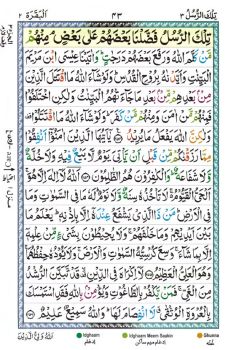 تِلْكَ الرُّسُلُ ٣
٤٣
اَلْبَقَرَة ٢
تِلْكَ الرُّسُلُ فَضَّلْنَا بَعْضَهُمْ عَلٰى بَعْضٍ مِنْهُمْ
مَّنْ كَلَّمَ اللّٰهُ وَرَفَعَ بَعْضَهُمْ دَرَجٰتٍ وَاٰتَيْنَا عِيْسَى ابْنَ مَرْيَمَ
الْبَيِّنٰتِ وَاَيَّدْنٰهُ بِرُوْحِ الْقُدُسِ وَلَوْ شَآءَ اللّٰهُ مَا اقْتَتَلَ الَّذِيْنَ
مِنْۢ بَعْدِهِمْ مِّنْۢ بَعْدِ مَا جَآءَتْهُمُ الْبَيِّنٰتُ وَلٰكِنِ اخْتَلَفُوْا
فَمِنْهُمْ مَّنْ اٰمَنَ وَمِنْهُمْ مَّنْ كَفَرَ وَلَوْ شَآءَ اللّٰهُ مَا اقْتَتَلُوْا
وَلٰكِنَّ اللّٰهَ يَفْعَلُ مَا يُرِيْدُ يٰٓاَيُّهَا الَّذِيْنَ اٰمَنُوْٓا اَنْفِقُوْا
مِمَّا رَزَقْنٰكُمْ مِّنْ قَبْلِ اَنْ يَّاْتِيَ يَوْمٌ لَّا بَيْعٌ فِيْهِ وَلَا خُلَّةٌ
وَّلَا شَفَاعَةٌ وَالْكٰفِرُوْنَ هُمُ الظّٰلِمُوْنَ اللّٰهُ لَآ اِلٰهَ اِلَّا هُوَ
اَلْحَيُّ الْقَيُّوْمُ لَا تَاْخُذُهٗ سِنَةٌ وَّلَا نَوْمٌ لَهٗ مَا فِي السَّمٰوٰتِ وَمَا
فِي الْاَرْضِ مَنْ ذَا الَّذِيْ يَشْفَعُ عِنْدَهٗٓ اِلَّا بِاِذْنِهٖ يَعْلَمُ مَا
بَيْنَ اَيْدِيْهِمْ وَمَا خَلْفَهُمْ وَلَا يُحِيْطُوْنَ بِشَيْءٍ مِّنْ عِلْمِهٖٓ
اِلَّا بِمَا شَآءَ وَسِعَ كُرْسِيُّهُ السَّمٰوٰتِ وَالْاَرْضَ وَلَا يَئُوْدُهٗ حِفْظُهُمَا
وَهُوَ الْعَلِيُّ الْعَظِيْمُ لَآ اِكْرَاهَ فِي الدِّيْنِ قَدْ تَّبَيَّنَ الرُّشْدُ
مِنَ الْغَيِّ فَمَنْ يَّكْفُرْ بِالطَّاغُوْتِ وَيُؤْمِنْۢ بِاللّٰهِ فَقَدِ اسْتَمْسَكَ
بِالْعُرْوَةِ الْوُثْقٰى لَا انْفِصَامَ لَهَا وَاللّٰهُ سَمِيْعٌ عَلِيْمٌ
اَللّٰهُ وَلِيُّ الَّذِيْنَ
Idgham
ادغام
Idghaam Meem Saakin
ادغام میم ساکن
Ghunna
غنّه